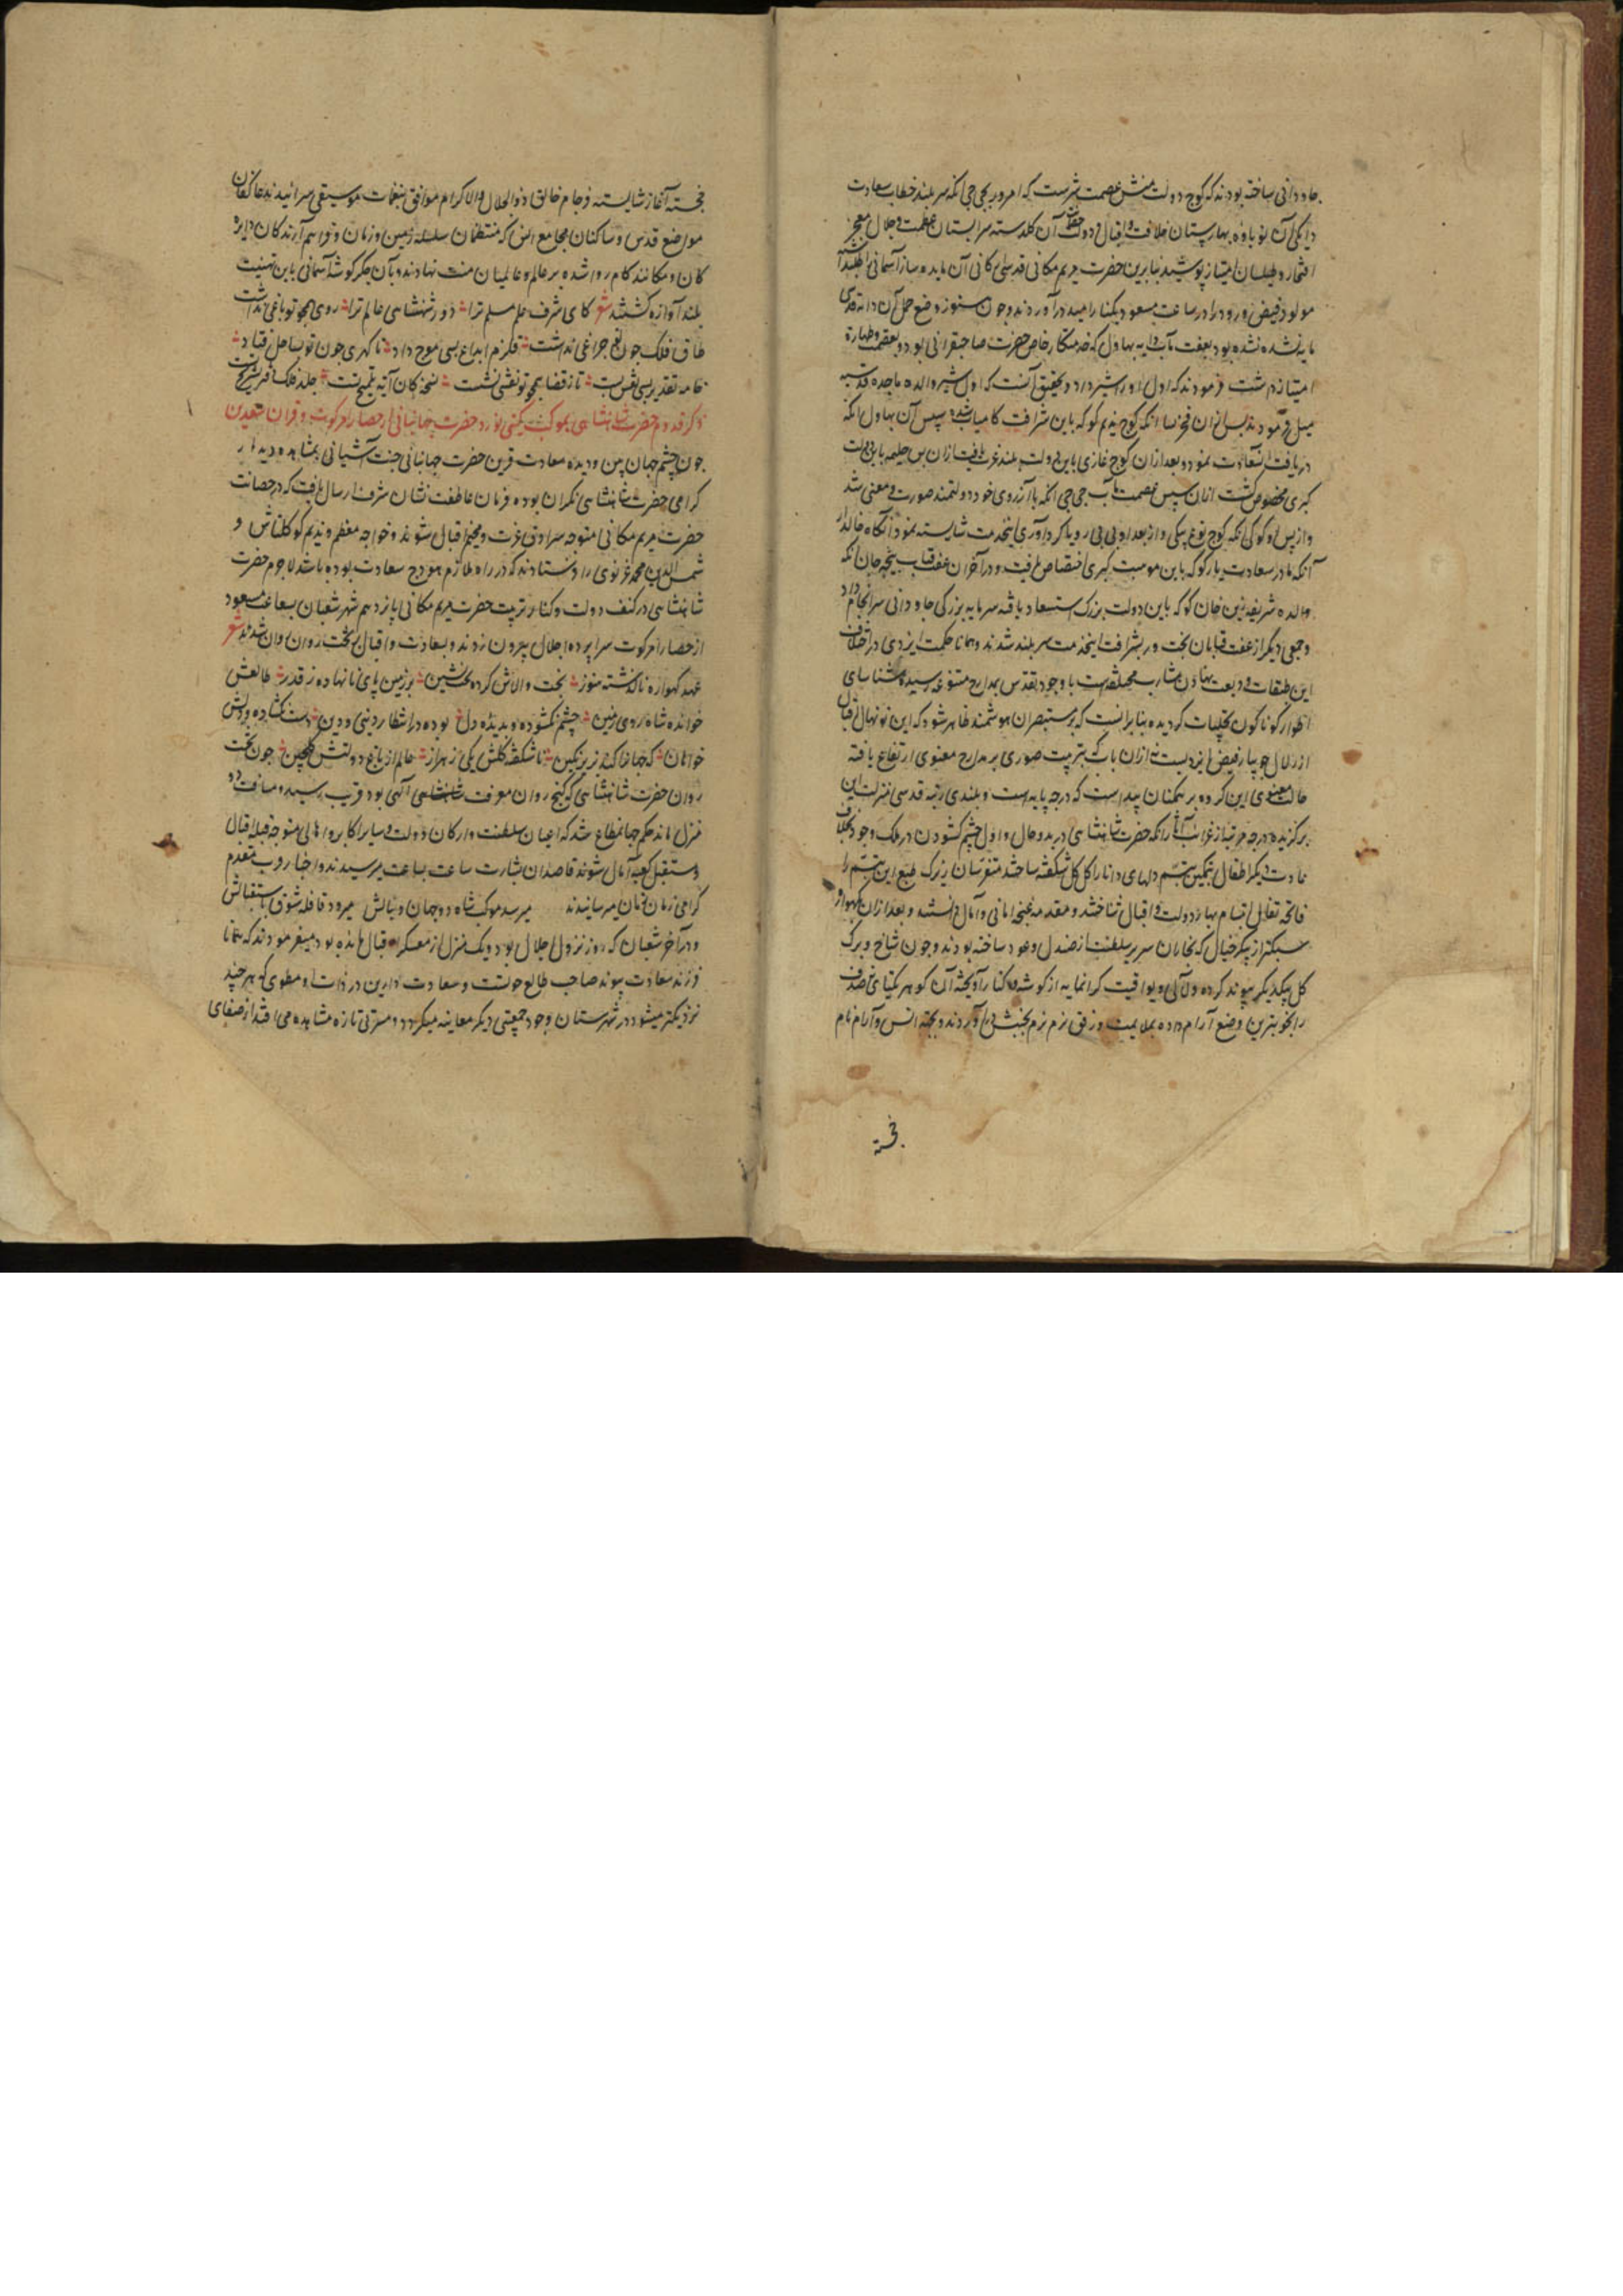 جاودانی ساخته بودند که کوچ دولت منش عصمت سرشت که امروز بجی جی انکه سربلند خطاب سعادت
دایگی آن نوباوه بهارستان خلافت و اقبال و دولت آن گلدسته سرابستان عظمت و جلال معجر
افتخار و طیلسان امتیاز پوشید بنابرین حضرت مریم مکانی قدسی ارکانی آن مایده ساز آسمانی را طلبداشته
مولود فیض ورود را در ساعت مسعود بکنار امید درآوردند و چون هنوز وضع حمل آن دایه قدسی
مایه نشده بود بعفت مآب دایه بهاول که خدمتکار خاص حضرت صاحبقرانی بود و بعصمت و طهارت
امتیاز داشت فرمودند که اول او را شیر داد و تحقیق آنست که اول شیر والده ماجده قدسیه
میل فرمودند پس ازان فخر نسا انکه کوچ ندیم کوکه باین شرافت کامیاب شده و سپس آن بهاول انکه
دریافت این سعادت نمود و بعد ازان کوچ غازی باین دولت بلند عزت یافت ازان پس حلیمه باین دولت
کبری مخصوص گشت ازان سپس عصمت مآب جی جی انکه با آرزوی خود دولتمند صورت و معنی شد
و از پس او کوکی انکه کوچ توغ بیگی و از بعد او بی بی روپا گردآوری اینخدمت شایسته نمود آنگاه خالدار
آنکه مادر سعادت یار کوکه باین موهبت کبری اختصاص یافت و در آخر آن عفت قباب پیجه جان انکه
والده شریفه زین خان کوکه باین دولت بزرگ استسعاد یافته سرمایه بزرگی جاودانی سرانجام داد
و جمعی دیگر از عفت قبابان بخت ور بشرافت اینخدمت سربلند شدند و همانا حکمت ایزدی در اختلاف
این طبقات ودیعت نهادن مشارب مختلفه است با وجود تقدس بمدارج متنوعه رسیده شناسای
اطوار گوناگون تجلیات گردیده بنابرانست که بر مستبصران هوشمند ظاهر شود که این نونهال اقبال
از زلال جویبار فیض ایزدیست نه ازان باب که بتربیت صوری بر مدارج معنوی ارتفاع یافته
حالت معنوی این گروه بر همگنان پیداست که درجه پایه است و بلندی رتبه قدسی منزلت این
برگزیده درجه مرتبه از غرایب آثار آنکه حضرت شاهنشاهی در بدو حال و اول چشم گشودن در ملک وجود بخلاف
عادت دیگر اطفال بنمکین تبسم دلهای دانا را گل گل شگفته ساختند متفرسان زیرک طبع این تبسم را
فاتحه تفاؤل ابتسام بهار دولت و اقبال شناختند و مقدمه غنچه امانی و آمال دانستند و بعد ازان گهواره
سبکتر از پیکر خیال که نجاران سریر سلطنت از صندل و عود ساخته بودند و چون شاخ و برگ
گل بیکدیگر پیوند کرده و لآلی و یواقیت گرانمایه از گوشه و کنار آویخته آن گوهر یکتای نه صدف
را بخوبترین وضع آرام داده بملایمت و رفق نرم نرم بجنبش می آوردند و بجهة انس و آرام نام
خجسته
خجسته آغاز شایسته فرجام خالق ذوالجلال والاکرام موافق بنغمات موسیقی سرانیدند عاکفان
مواضع قدس و ساکنان مجامع انس که منتظمان سلسله زمین و زمان و فراهم آرندگان دایره
کان و مکانند کام روا شده بر عالم و عالمیان منت نهادند و بآن جگرگوشه آسمانی باین تهنیت
بلند آوازه گشتند شعر کای شرف علم مسلم ترا دور شهنشاهی عالم ترا روی همچو تو باغی نداشت
طاق فلک چون تو چراغی نداشت قلزم ابداع بسی موج داد تا گهری چون تو بساحل فتاد
خامه تقدیر بسی نقش بست تا ز قضا همچو تو نقشی نشست نسخه کان آیه تلمیح تست جلد فلک دفتر تشریح تست
ذکر قدوم حضرت شاهنشاهی بموکب گیتی نورد حضرت جهانبانی از حصار امرکوت و قران سعدین
چون چشم جهان بین و دیده سعادت قرین حضرت جهانبانی جنت آشیانی بمشاهده دیدار
گرامی حضرت شاهنشاهی نگران بوده فرمان عاطفت نشان شرف ارسال یافت که در حصانت
حضرت مریم مکانی متوجه سرادق عزت و مخیم اقبال شوند و خواجه معظم و ندیم کوکلتاش و
شمس الدین محمد غزنوی را فرستادند که در راه ملازم هودج سعادت بوده باشند لاجرم حضرت
شاهنشاهی در کنف دولت و کنار تربیت حضرت مریم مکانی یازدهم شهر شعبان بساعت مسعود
از حصار امرکوت سراپرده اجلال بیرون زدند و بسعادت و اقبال بر تخت روان روان شدند شعر
عهد گهواره ناگذشته هنوز بخت والاش کرده تخت نشین بر زمین پای نانهاده ز قدر طالعش
خوانده شاه روی زمین چشم نگشوده و بدیده دل بوده در انتظار دنیی و دین دست نگشاده و دلش
خواهان که جهان را کند بزیر نگین ناشکفته گلش یکی ز هزار عالم از باغ دولتش گلچین چون تخت
روان حضرت شاهنشاهی که گنج روان معرفت شاهنشاهی آلهی بود قریب رسید و مسافت دو
منزل ماند حکم جهانمطاع شد که اعیان سلطنت و ارکان دولت و سایر اکابر و اهالی متوجه قبله اقبال
و مستقبل کعبه آمال شوند قاصدان بشارت ساعت بساعت میرسیدند و اخبار قریب مقدم
گرامی زمان زمان میرسانیدند میرسد موکب شاه دو جهان و بنالش میرود قافله شوق باستقبالش
و در آخر شعبان که روز نزول اجلال بود و یک منزل از معسکر اقبال مانده بود میفرمودند که همانا
فرزند سعادت پیوند صاحب طالع حولست و سعادت دارین در ذات او مطوی که هر چند
نزدیکتر میشود در شهرستان وجود جمعیتی دیگر معاینه میگردد و مسرتی تازه مشاهده می افتد از صفای